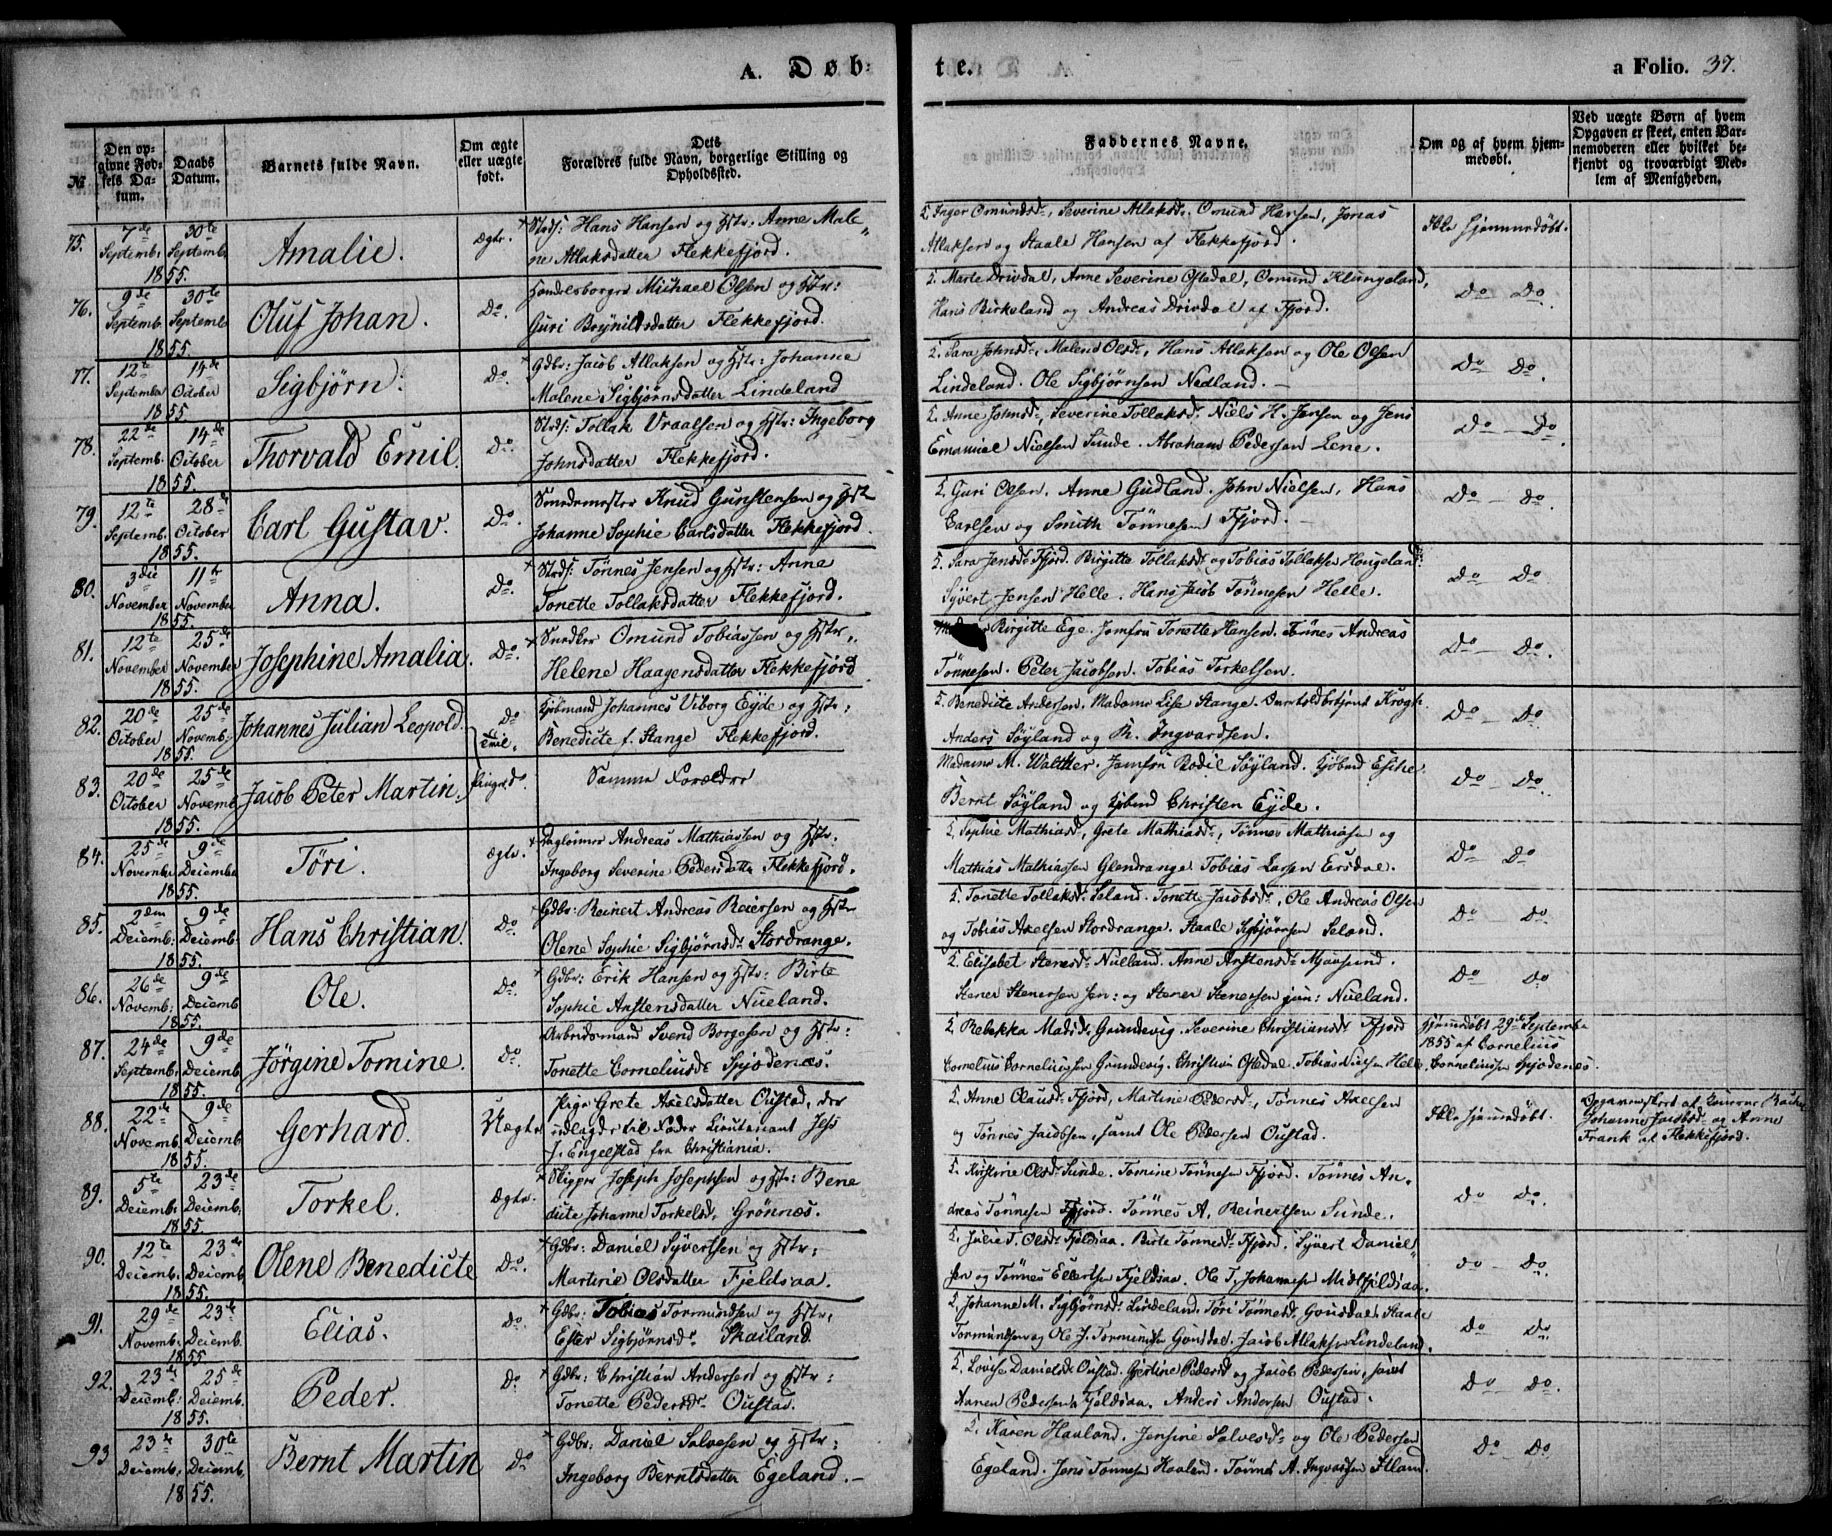 A. Døb:
te.
a Folio. 37.
№
Den op-
givne Fød-
sels Da-
tum.
Daabs
Datum.
Barnets fulde Navn.
Om ægte
eller uægte
født.
Dets
Forældres fulde Navn, borgerlige Stilling og
Opholdssted.
Faddernes Navne.
Om og af hvem hjem-
medøbt.
Ved uægte Børn af hvem
Opgaven er skeet, enten Bar-
nemoderen eller hvilket be-
kjendt og troværdigt Med-
lem af Menigheden.
75. 7de Septemb: 30te Septemb: 1855. Amalie. Ægte.
Hans Hansen og Hstr: Anne Male-
ne Atlaksdatter Flekkefjord.
Inger Omundsd:, Severine Atlaksd:, Omund Hansen, Jonas
Atlaksen og Staale Hansen af Flekkefjord.
Ikke hjemmedøbt.
76. 9de Septemb. 30te Septemb. 1855. Oluf Johan. Do.
Handelsborger Michael Olsen og Hstr:
Guri Brynildsdatter Flekkefjord.
Marte Drivdal, Anne Severine Ofstedal, Omund Klungeland,
Hans Birkeland og Andreas Drivdal af Fjord.
Do Do.
77. 12te Septembr 14de October 1855. Sigbjørn. Do.
Gdbr: Jacob Atlaksen og Hstr: Johanne
Malene Sigbjørnsdatter Lindeland
Sara Johnsd:, Malene Olsd:, Hans Atlaksen og Ole Olsen
Lindeland. Ole Sigbjørnsen Nedland.
Do Do.
78. 22de Septemb. 14de October 1855. Thorvald Emil. Do.
Tollak Vraalsen og Hstr: Ingeborg
Johnsdatter Flekkefjord.
Anne Johnsd:, Severine Tollaksd: Niels H. Jensen og Jens
Emanuel Nielsen Sunde. Abraham Pedersen Lene.
Do Do.
79. 12te Septemb. 28de October 1855. Carl Gustav. Do.
Smedemester Knud Gunstensen og Hstr
Johanne Sophie Carlsdatter Flekkefjord.
Guri Olsen. Anne Gudland. John Nielsen, Hans
Carlsen og Smith Tønnesen Fjord.
Do Do.
80. 3die November 11te November 1855. Anna. Do.
Tønnes Jensen og Hstr: Anne
Tonette Tollaksdatter Flekkefjord.
Sara Jensd: Fjord. Birgitte Tollaksd: og Tobias Tollaksen Hougeland.
Syvert Jensen Helle. Hans Jacob Tønnesen Helle.
Do Do
81. 12te November 25de November 1855. Josephine Amalia. Do.
Snedker Omund Tobiassen og Hstr,
Helene Haagensdatter Flekkefjord
Birgitte Ege. Jomfru Tonette Hansen. Tønnes Andreas
Tønnesen. Peter Jacobsen. Tobias Torkelsen.
Do Do.
82. 20de October 25de Novemb: 1855. Johannes Julian Leopold. Do
Kjøbmand Johannes Viborg Eyde og Hstr,
Benedicte f. Stange Flekkefjord.
Benedicte Andersen, Madame Lise Stange. Krogh.
Anders Søyland og R. Ingvardsen.
Do Do
83. 20de October 25de Novemb 1855. Jacob Peter Martin.
Samme Forældre
Madame M. Walther. Jomfru Bodil Søyland. Kjøbmd Esche
Bernt Søyland og Kjøbmd Christen Eyde.
Do Do
84. 25de November 9de Decembr 1855. Töri. Ægte.
Dagleiner Andreas Mathiassen og Hstr:
Ingeborg Severine Pedersdatter Flekkefjord.
Sophie Mathiasd:, Grete Mathiasd:, Tønnes Mathiasen og
Mathias Mathiassen Glendrange. Tobias Larsen Ersdal.
Do Do
85. 2den Decemb: 9de Decemb. 1855. Hans Christian. Do.
Gdbr: Reinert Andreas Reiersen og Hstr
Olene Sophie Sigbjørnsd: Stordrange.
Tonette Tollaksd: Seland. Tonette Jacobsd:, Ole Andreas Olsen
og Tobias Axelsen Stordrange. Staale Sigbjørnsen Seland.
Do Do.
86. 26de Novemb: 9de Decemb 1855. Ole. Do.
Gdbr: Erik Hansen og Hstr: Birte
Sophie Anstensdatter Nueland.
Elisabet Stenersd: Nueland. Anne Anstensd:
Stener Stenersen sen: og Stener Stenersen jun: Nueland.
Do Do
87. 24de Septemb. 9de Decemb 1855. Jörgine Tomine. Do.
Arbeidsmand Svend Borgesen og Hstr:
Tonette Corneliusd:
Rebekka Madsd: Grundevig. Severine Christiansd: Fjord
Cornelius Corneliussen Grundevig. Christian Ofstedal. Tobias Nielsen Helle
Hjemmedøbt 29de Septembr
1855 af Cornelius
Corneliussen
88. 22de Novemb. 9de Decemb. 1855. Gerhard. Uægte
Pige Grete Axelsdatter Oustad, der
udlagde til Fader Lieutenant Jess
J. Engelstad fra Christiania.
Anne Olausd: Fjord, Martine Pedersd:, Tønnes Axelsen
og Tønnes Jacobsen, samt Ole Pedersen Oustad.
Ikke hjemmedøbt.
Opgaven skeet af
Johanne Jacobsd: og Anne
Frank af Flekkefjord.
89. 5te Decemb: 23de Decemb: 1855. Torkel. Ægte.
Skipper Joseph Josephsen og Hstr: Bene
dicte Johanne Torkelsd: Grønnæs.
Kirstine Olsd: Sunde. Tomine Tønnesen Fjord. Tønnes An-
dreas Tønnesen Fjord. Tønnes A. Reinertsen Sunde.
Do Do.
90. 12te Decemb. 23de Decemb 1855. Olene Benedicte Do.
Gdbr: Daniel Syvertsen og Hstr:
Martine Olsdatter Fjeldsaa.
Julie T. Olsd: Fjeldsaa. Birte Tønnesd: Fjord. Syvert Daniel-
sen og Tønnes Ellertsen Fjeldsaa. Ole T. Johannesen Midtfjeldsaa.
Do Do.
91. 29de Novemb. 23de Decemb. 1855. Elias. Do.
Gdbr: Tobias Tormundsen og Hstr,
Ester Sigbjørnsd: Skailand.
Johanne M. Sigbjørnsd: Lindeland. Töri Tønnesd: Gousdal. Staale
Tormundsen og Ole J. Tormundsen Gousdal. Jacob Atlaksen Lindeland.
Do Do.
92. 23de Decemb: 25de Decemb. 1855. Peder. Do.
Gdbr: Christian Andersen og Hstr:
Tonette Pedersd: Oustad.
Lovise Danielsd: Oustad. Gjertine Pedersd: og Jacob Pedersen, samt
Pedersen Fjeldsaa. Anders Andersen Oustad.
Do Do.
93 23de Decemb: 30te Decemb. 1855. Bernt Martin Do
Gdbr: Daniel Salvesen og Hstr:
Ingeborg Berntsdatter Egeland.
Karen Haaland. Jensine Salvesd: og Ole Pedersen
Egeland. Jens Tønnesen Haaland. Tønnes A. Ingvaldsen
Do Do.